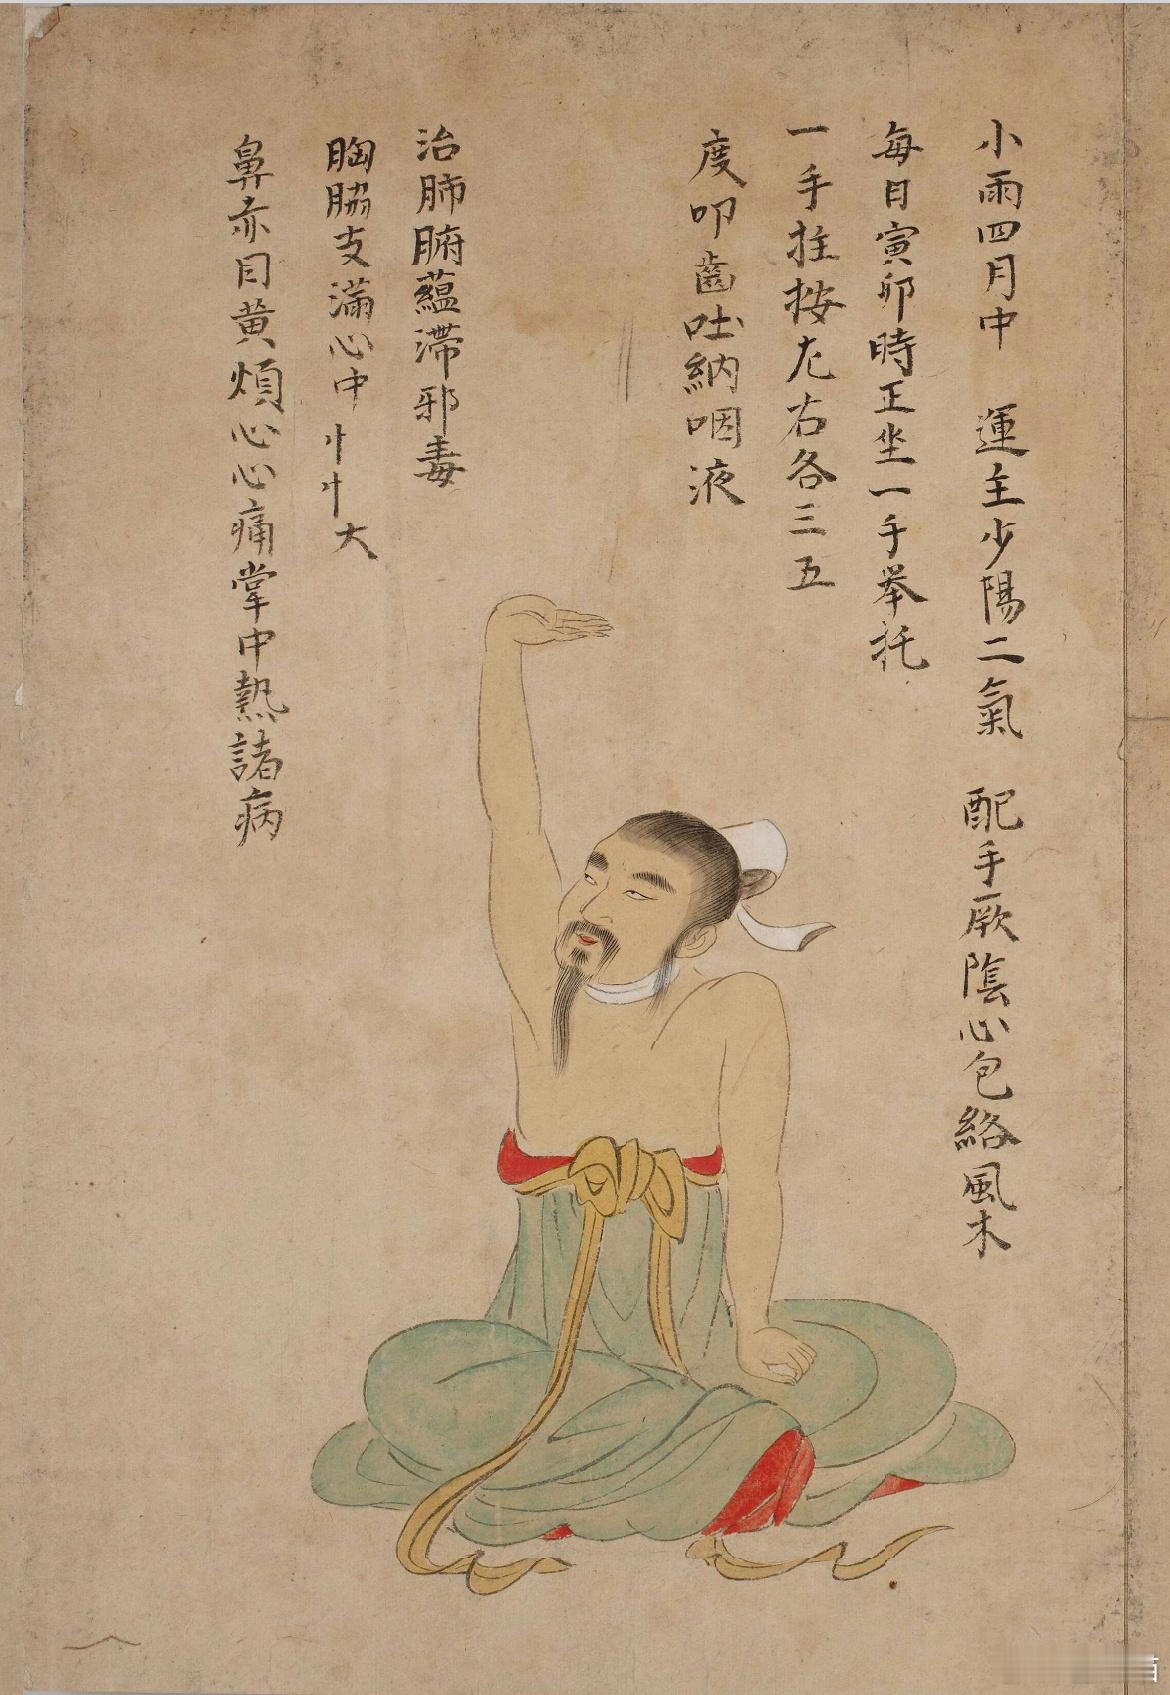 小雨四月中　運主少陽二氣　配手厥陰心包絡風木
每日寅卯時正坐一手举托
一手拄按左右各三五
度叩齒吐納咽液
治肺腑蘊滯邪毒
胸脇支滿心中忄忄大
鼻赤目黄煩心心痛掌中熱諸病